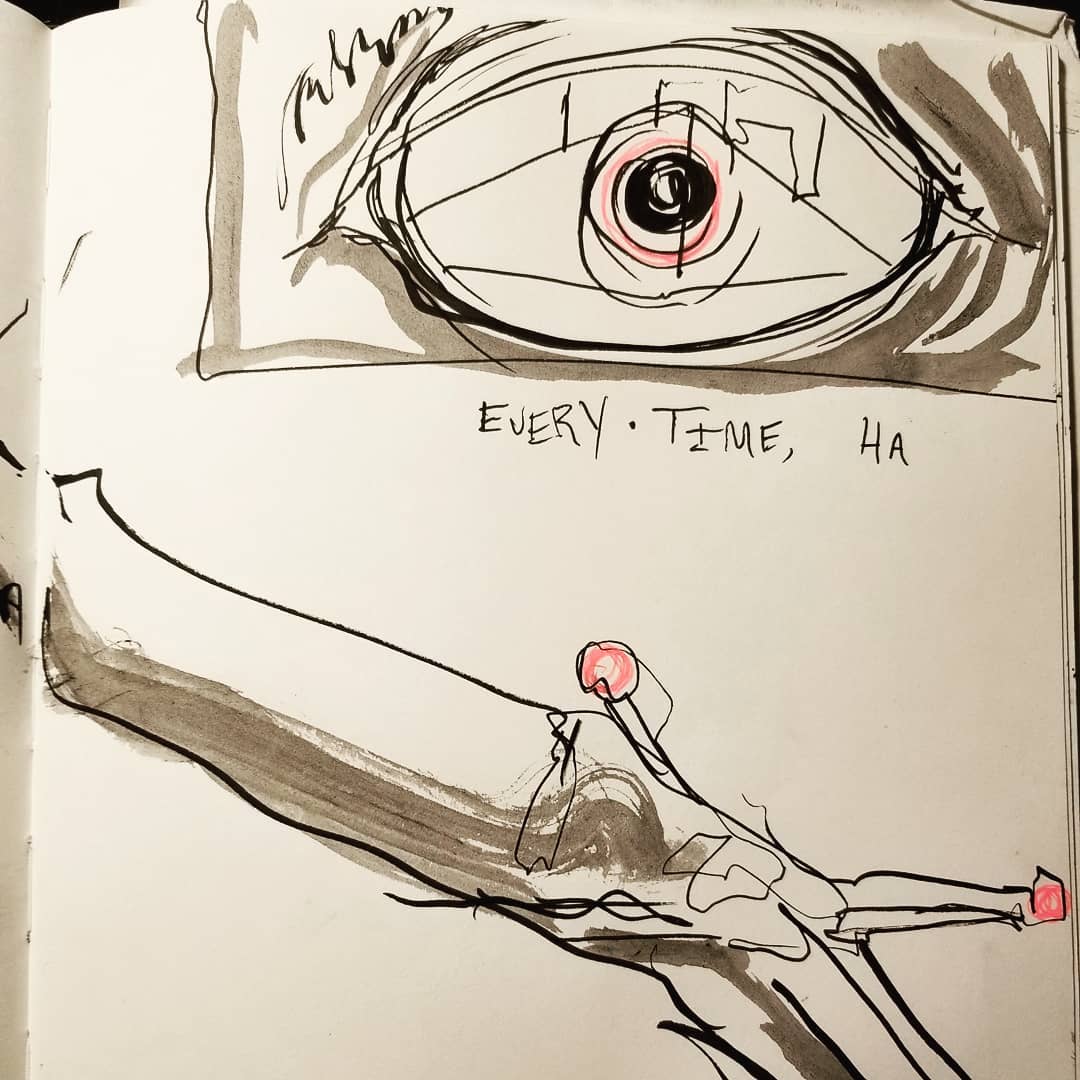 EVERY · TIME, HA